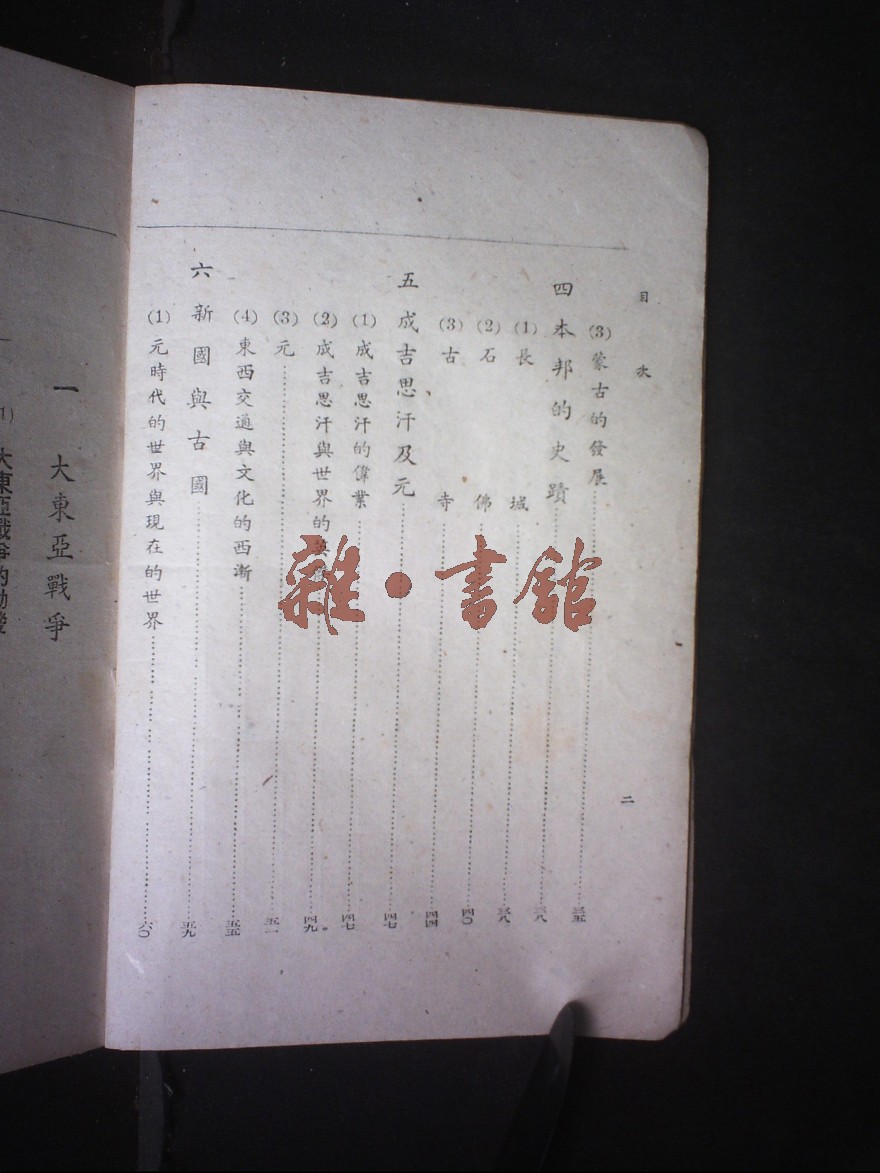 目次
二
(3)蒙古的發展……三五
四 本邦的史蹟……三八
(1)長城……三八
(2)石佛……四〇
(3)古寺……四四
五 成吉思汗及元……四七
(1)成吉思汗的偉業……四七
(2)成吉思汗與世界的……四九
(3)元……五一
(4)東西交通與文化的西漸……五五
六 新國與古國……五九
(1)元時代的世界與現在的世界……六〇
一 大東亞戰爭
(1)大東亞戰爭的動機
雜·書館